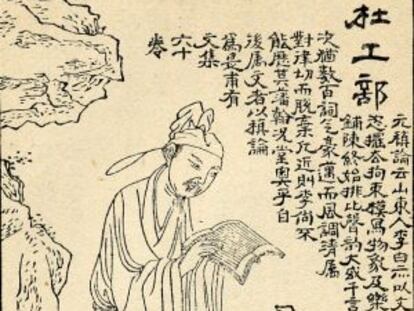 杜工部
元稹論云山東人李白亦以文
恣擺去拘束模寫物象及樂
鋪陳終始排比聲韵大或千言
次猶數百詞气豪邁而風調清屬
對律切而脫棄凡近則李尚不
能歷其藩翰況堂奧乎自
後屬文者以稹論
爲是甫有
文集
六十
卷